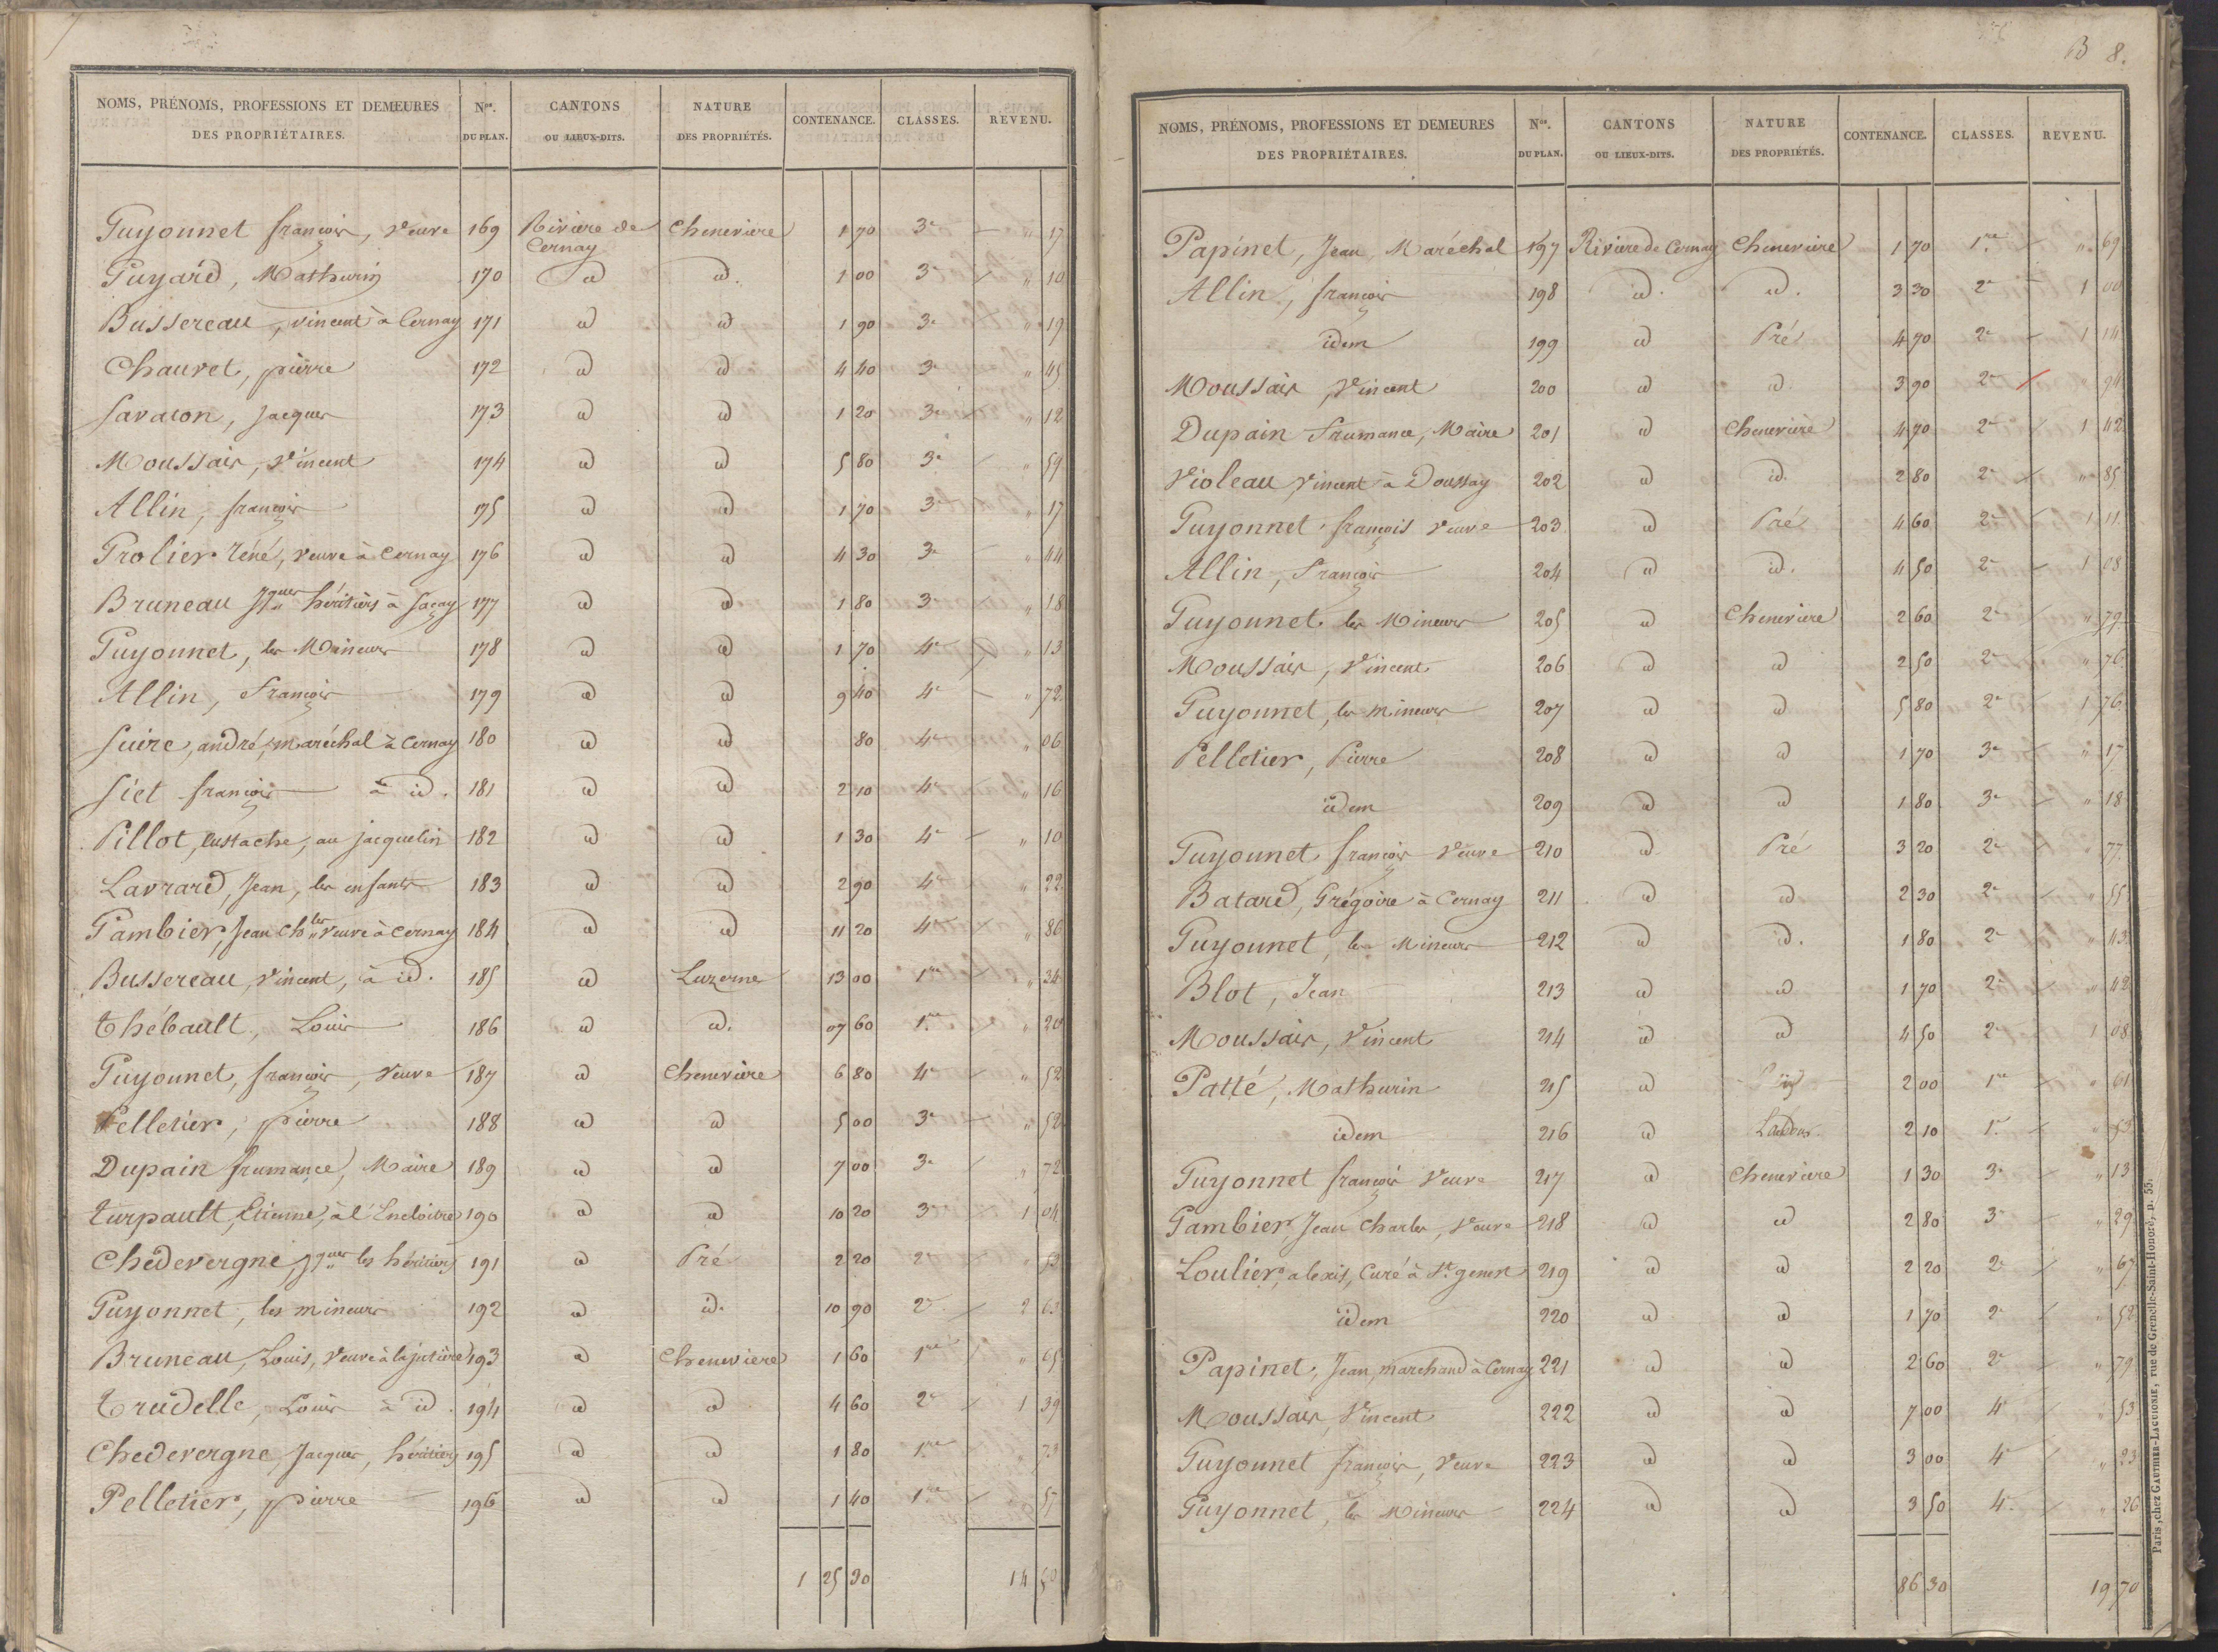 NOMS, PRÉNOMS, PROFESSIONS ET DEMEURES DES PROPRIÉTAIRES. Nos. DU PLAN. CANTONS OU LIEUX-DITS. NATURE DES PROPRIÉTÉS. CONTENANCE. CLASSES. REVENU.
Guyonnet françois, veuve 169 Rivière de Cernay Chenevière 1 70 3e " 17
Guyard, Mathurin 170 id id. 1 00 3e " 10
Bussereau, vincent à Cernay 171 id id 1 90 3e " 19
Chauvet, pierre 172 id id 4 40 3e " 45
Savaton, Jacques 173 id id 1 20 3e " 12
Moussais, Vincent 174 id id 5 80 3e " 59
Allin, françois 175 id id 1 70 3e " 17
Grolier Réné, veuve à Cernay 176 id id 4 30 3e " 44
Bruneau Jques héritiers à Saçay 177 id id 1 80 3e " 18
Guyonnet, les Mineurs 178 id id 1 70 4e " 13
Allin, François 179 id id 9 40 4e " 72
Suire, andré, maréchal à Cernay 180 id id 80 4e " 06
Siet françois à id. 181 id id 2 10 4e " 16
Pillot, eustache, au jacquelin 182 id id 1 30 4e " 10
Lavrard, Jean, les enfants 183 id id 2 90 4e " 22
Gambier, Jean Chles veuve à Cernay 184 id id 11 20 4e " 86
Bussereau, Vincent, à id. 185 id Luzerne 13 00 1re " 34
Thébault, Louis 186 id id. 07 60 1re " 20
Guyonnet, françois, Veuve 187 id Chenevière 6 80 4e " 52
Pelletier, pierre 188 id id 5 00 3e " 52
Dupain frumance, Maire 189 id id 7 00 3e " 72
Turpault, Etienne, à l'Encloitre 190 id id 10 20 3e 1 04
Chedevergne, Jques les héritiers 191 id Pré 2 20 2e " 53
Guyonnet, les mineurs 192 id id. 10 90 2e 2 63
Bruneau, Louis, Veuve à la jutière 193 id Chenevière 1 60 1re " 65
Trudelle, Louis à id. 194 id id 4 60 2e 1 39
Chedevergne, Jacques, héritiers 195 id id 1 80 1re " 73
Pelletier, pierre 196 id id 1 40 1re " 57
1 25 30 14
B 8.
NOMS, PRÉNOMS, PROFESSIONS ET DEMEURES DES PROPRIÉTAIRES. Nos. DU PLAN. CANTONS OU LIEUX-DITS. NATURE DES PROPRIÉTÉS. CONTENANCE. CLASSES. REVENU.
Papinet, Jean, Maréchal 197 Rivière de Cernay Chenevière 1 70 1re " 69
Allin, françois 198 id. id. 3 30 2e 1 00
idem 199 id Pré 4 70 2e 1 14
Moussais, Vincent 200 id id. 3 90 2e 94
Dupain Frumance, Maire 201 id Chenevière 4 70 2e 1 42
Violeau, Vincent à Doussay 202 id id. 2 80 2e " 85
Guyonnet, françois veuve 203 id Pré 4 60 2e 1 11
Allin, François 204 id id. 4 50 2e 1 08
Guyonnet les Mineurs 205 id Chenevière 2 60 2e " 79
Moussais, Vincent 206 id id 2 50 2e " 76
Guyonnet, les mineurs 207 id id 5 80 2e 1 76
Pelletier, Pierre 208 id id 1 70 3e " 17
idem 209 id id 1 80 3e " 18
Guyonnet françois Veuve 210 id Pré 3 20 2e " 77
Batard, Grégoire à Cernay 211 id id 2 30 2e " 55
Guyonnet, les Mineurs 212 id id. 1 80 2e " 43
Blot, Jean 213 id id 1 70 2e " 42
Moussais, Vincent 214 id id 4 50 2e 1 08
Patté, Mathurin 215 id 2 00 1re " 61
idem 216 id 2 10 1re " 53
Guyonnet françois Veuve 217 id Chenevière 1 30 3e " 13
Gambier, Jean Charles, Veuve 218 id id 2 80 3e " 29
Loulier, alexis, Curé à St. genest 219 id id 2 20 2e " 67
idem 220 id id 1 70 2e " 52
Papinet, Jean, marchand à Cernay 221 id id 2 60 2e " 79
Moussais, Vincent 222 id id 7 00 4e " 53
Guyonnet françois, Veuve 223 id id 3 00 4e " 23
Guyonnet, les Mineurs 224 id id 3 50 4e " 26
86 30 19 70
Paris, chez GAUTHIER-LAGUIONIE, rue de Grenelle-Saint-Honoré, n. 55.